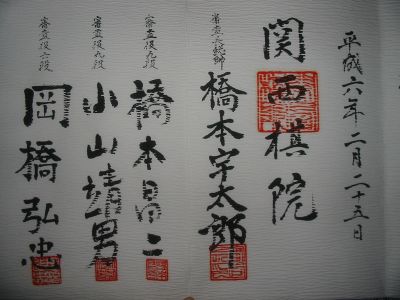 平成六年二月二十五日
関西棋院
審査長総師
橋本宇太郎
審査役九段
橋本昌二
審査役九段
小山靖男
審査役六段
岡橋弘忠